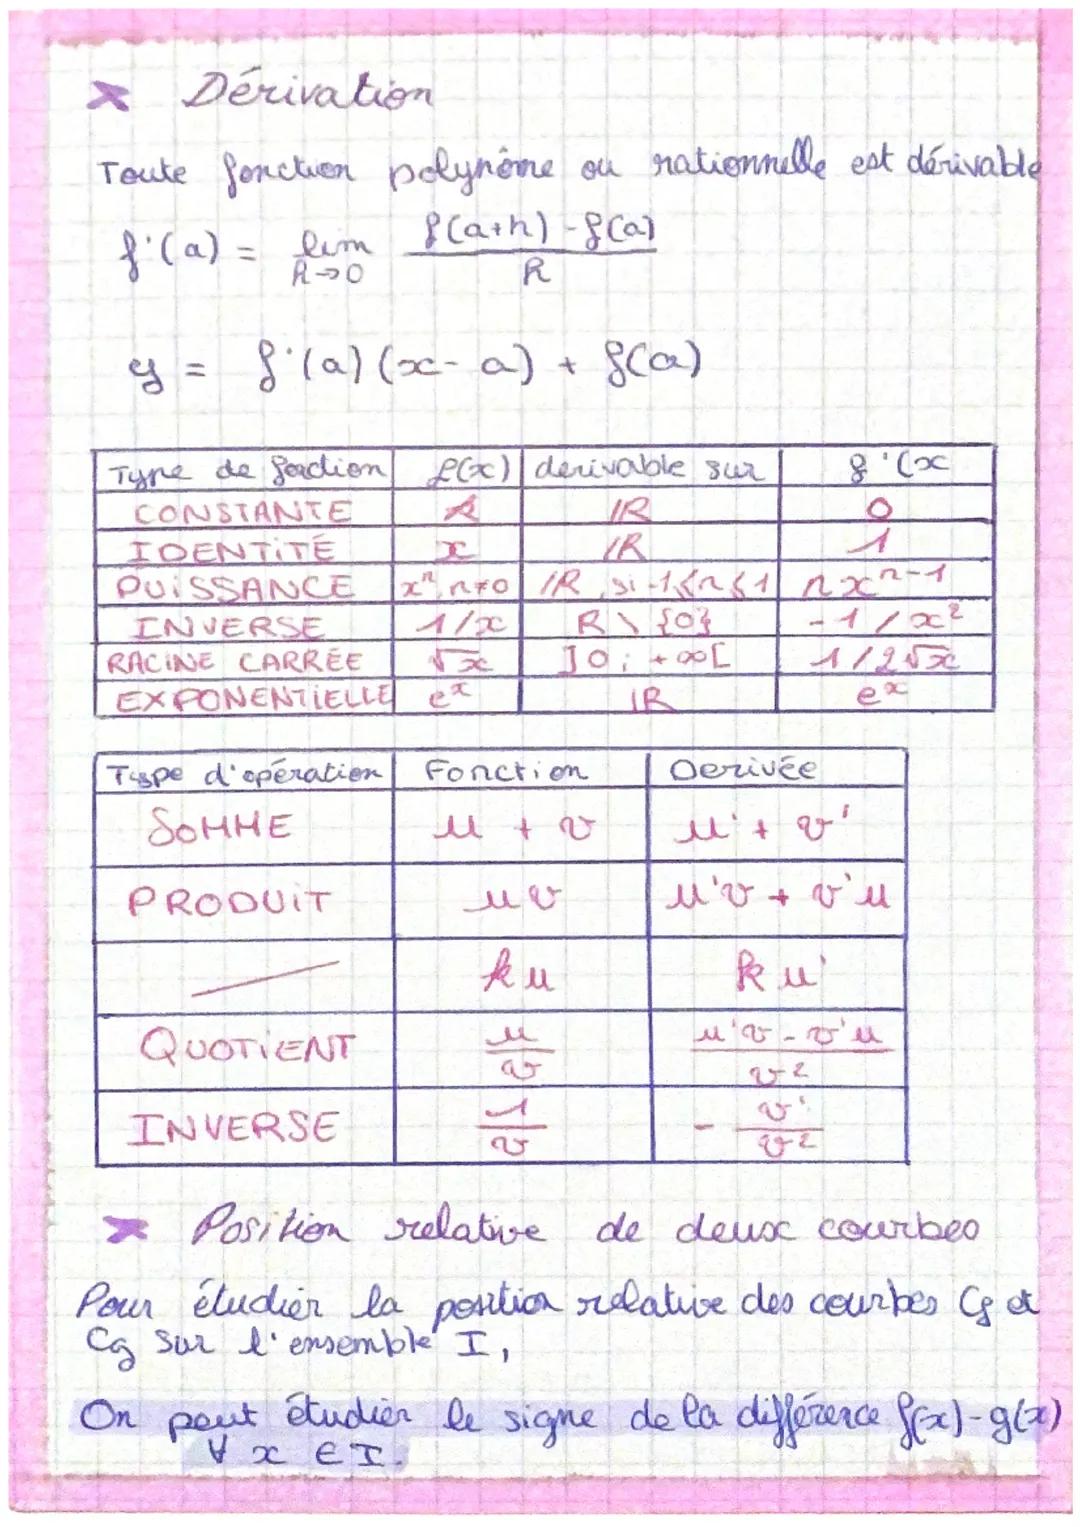 Dérivation
Toute fonction polynôme ou rationnelle est dérivable
f'(a) = lim h→0 f(a+h) - f(a) / h
y = f'(a) (x - a) + f(a)
Type de fonction | f(x) | derivable sur | f'(x
CONSTANTE | k | IR | 0
IDENTITÉ | x | IR | 1
PUISSANCE | xⁿ, n≠0 | IR si -1≤n≤1 | n xⁿ⁻¹
INVERSE | 1/x | R \ {0} | -1/x²
RACINE CARRÉE | √x | ]0; +∞[ | 1/2√x
EXPONENTIELLE | eˣ | IR | eˣ
Type d'opération | Fonction | Derivée
SOMME | u + v | u' + v'
PRODUIT | uv | u'v + v'u
ku | ku'
QUOTIENT | u/v | u'v - v'u / v²
INVERSE | 1/v | - v'/v²
Position relative de deux courbes
Pour étudier la position relative des courbes Cf et
Cg sur l'ensemble I,
On peut étudier le signe de la différence f(x)-g(x)
∀ x ∈ I.